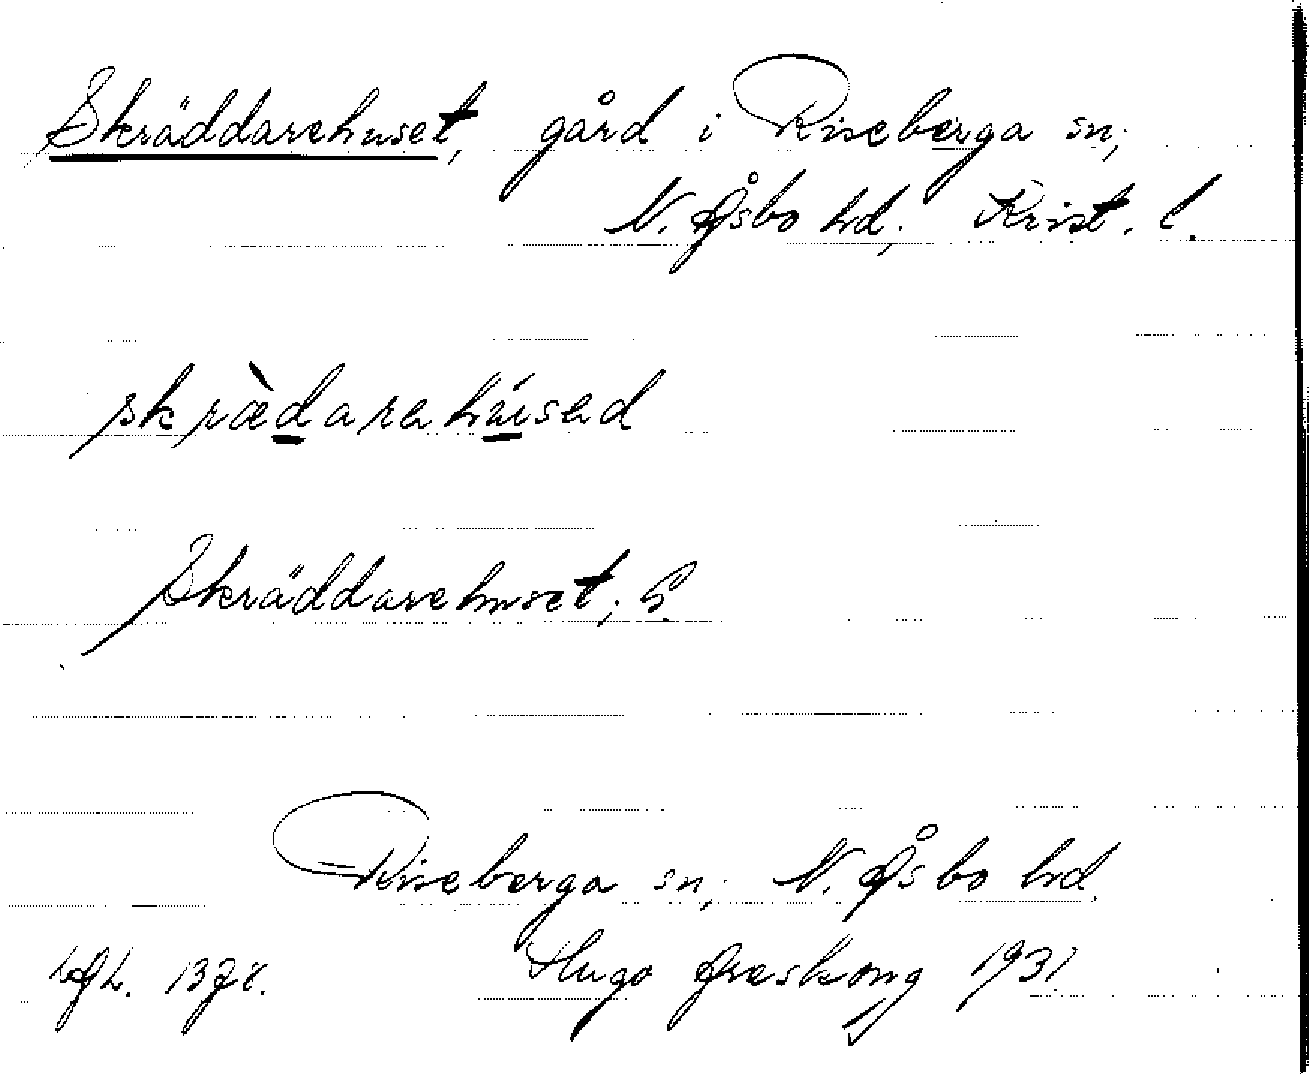 Skräddarehuset, gård i Riseberga sn,
N. Åsbo hd, Krist. l.
skrædarahúsəd
Skräddarehuset, S
Riseberga sn, N. Åsbo hd.
Hugo Areskoug 1931